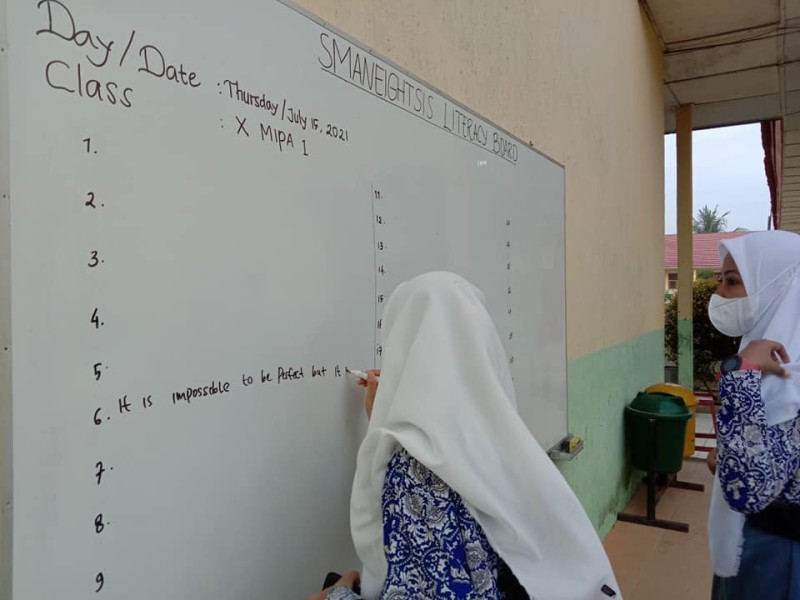 SMANEIGHTSIS LITERACY BOARD
Day/Date : Thursday/July 15, 2021
Class : X MIPA 1
1.
2.
3.
4.
5.
6. It is impossable to be Perfect but it
7.
8.
9
11.
12.
13.
14.
15
16
17